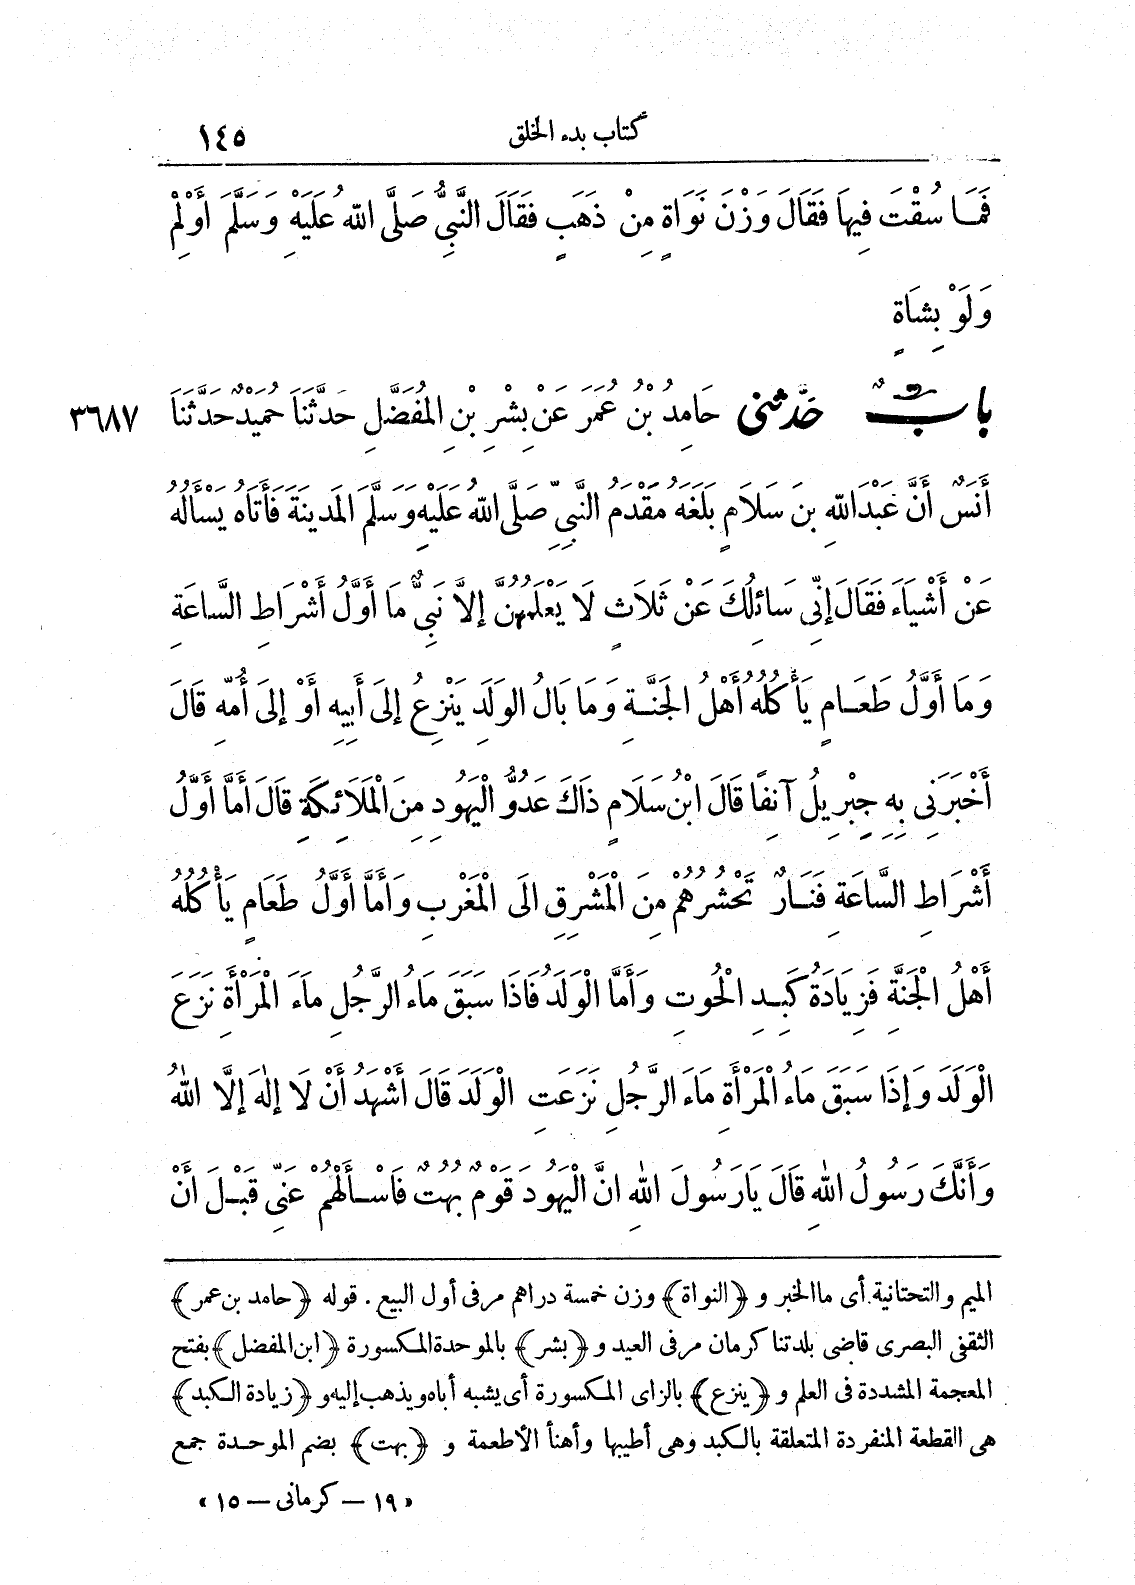 كتاب بدء الخلق ١٤٥
فَمَا سُقْتَ فِيهَا فَقَالَ وَزْنَ نَوَاةٍ مِنْ ذَهَبٍ فَقَالَ النَّبِيُّ صَلَّى اللّهُ عَلَيْهِ وَسَلَّمَ أَوْلِمْ
وَلَوْ بِشَاةٍ
بابٌ حَدَّثَنِى حَامِدُ بْنُ عُمَرَ عَنْ بِشْرِ بْنِ الْمُفَضَّلِ حَدَّثَنَا حُمَيْدٌ حَدَّثَنَا ٣٦٨٧
أَنَسٌ أَنَّ عَبْدَ اللّهِ بنَ سَلَامٍ بَلَغَهُ مَقْدَمُ النَّبِيِّ صَلَّى اللّهُ عَلَيْهِ وَسَلَّمَ الْمَدِينَةَ فَأَتَاهُ يَسْأَلُهُ
عَنْ أَشْيَاءَ فَقَالَ إِنِّى سَائِلُكَ عَنْ ثَلَاثٍ لَا يَعْلَمُهُنَّ إِلَّا نَبِيٌّ مَا أَوَّلُ أَشْرَاطِ السَّاعَةِ
وَمَا أَوَّلُ طَعَامٍ يَأْكُلُهُ أَهْلُ الْجَنَّةِ وَمَا بَالُ الْوَلَدِ يَنْزِعُ إِلَى أَبِيهِ أَوْ إِلَى أُمِّهِ قَالَ
أَخْبَرَنِى بِهِ جِبْرِيلُ آنِفًا قَالَ ابْنُ سَلَامٍ ذَاكَ عَدُوُّ الْيَهُودِ مِنَ الْمَلَائِكَةِ قَالَ أَمَّا أَوَّلُ
أَشْرَاطِ السَّاعَةِ فَنَارٌ تَحْشُرُهُمْ مِنَ الْمَشْرِقِ الَى الْمَغْرِبِ وَأَمَّا أَوَّلُ طَعَامٍ يَأْكُلُهُ
أَهْلُ الْجَنَّةِ فَزِيَادَةُ كَبِدِ الْحُوتِ وَأَمَّا الْوَلَدُ فَاذَا سَبَقَ مَاءُ الرَّجُلِ مَاءَ الْمَرْأَةِ نَزَعَ
الْوَلَدَ وَإِذَا سَبَقَ مَاءُ الْمَرْأَةِ مَاءَ الرَّجُلِ نَزَعَتِ الْوَلَدَ قَالَ أَشْهَدُ أَنْ لَا إِلٰهَ إِلَّا اللّٰهُ
وَأَنَّكَ رَسُولُ اللّٰهِ قَالَ يَا رَسُولَ اللّٰهِ انَّ الْيَهُودَ قَوْمٌ بُهُتٌ فَاسْأَلْهُمْ عَنِّى قَبْلَ أَنْ
الميم والتحتانية. أى ما الخبر و ﴿النواة﴾ وزن خمسة دراهم مر فى أول البيع. قوله ﴿حامد بن عمر﴾
الثقفى البصرى قاضى بلدتنا كرمان مر فى العيد و ﴿بشر﴾ بالموحدة المكسورة ﴿ابن المفضل﴾ بفتح
المعجمة المشددة فى العلم و ﴿ينزع﴾ بالزاى المكسورة أى يشبه أباه ويذهب إليه و ﴿زيادة الكبد﴾
هى القطعة المنفردة المتعلقة بالكبد وهى أطيبها وأهنأ الأطعمة و ﴿بهت﴾ بضم الموحدة جمع
«١٩ – كرمانى – ١٥»